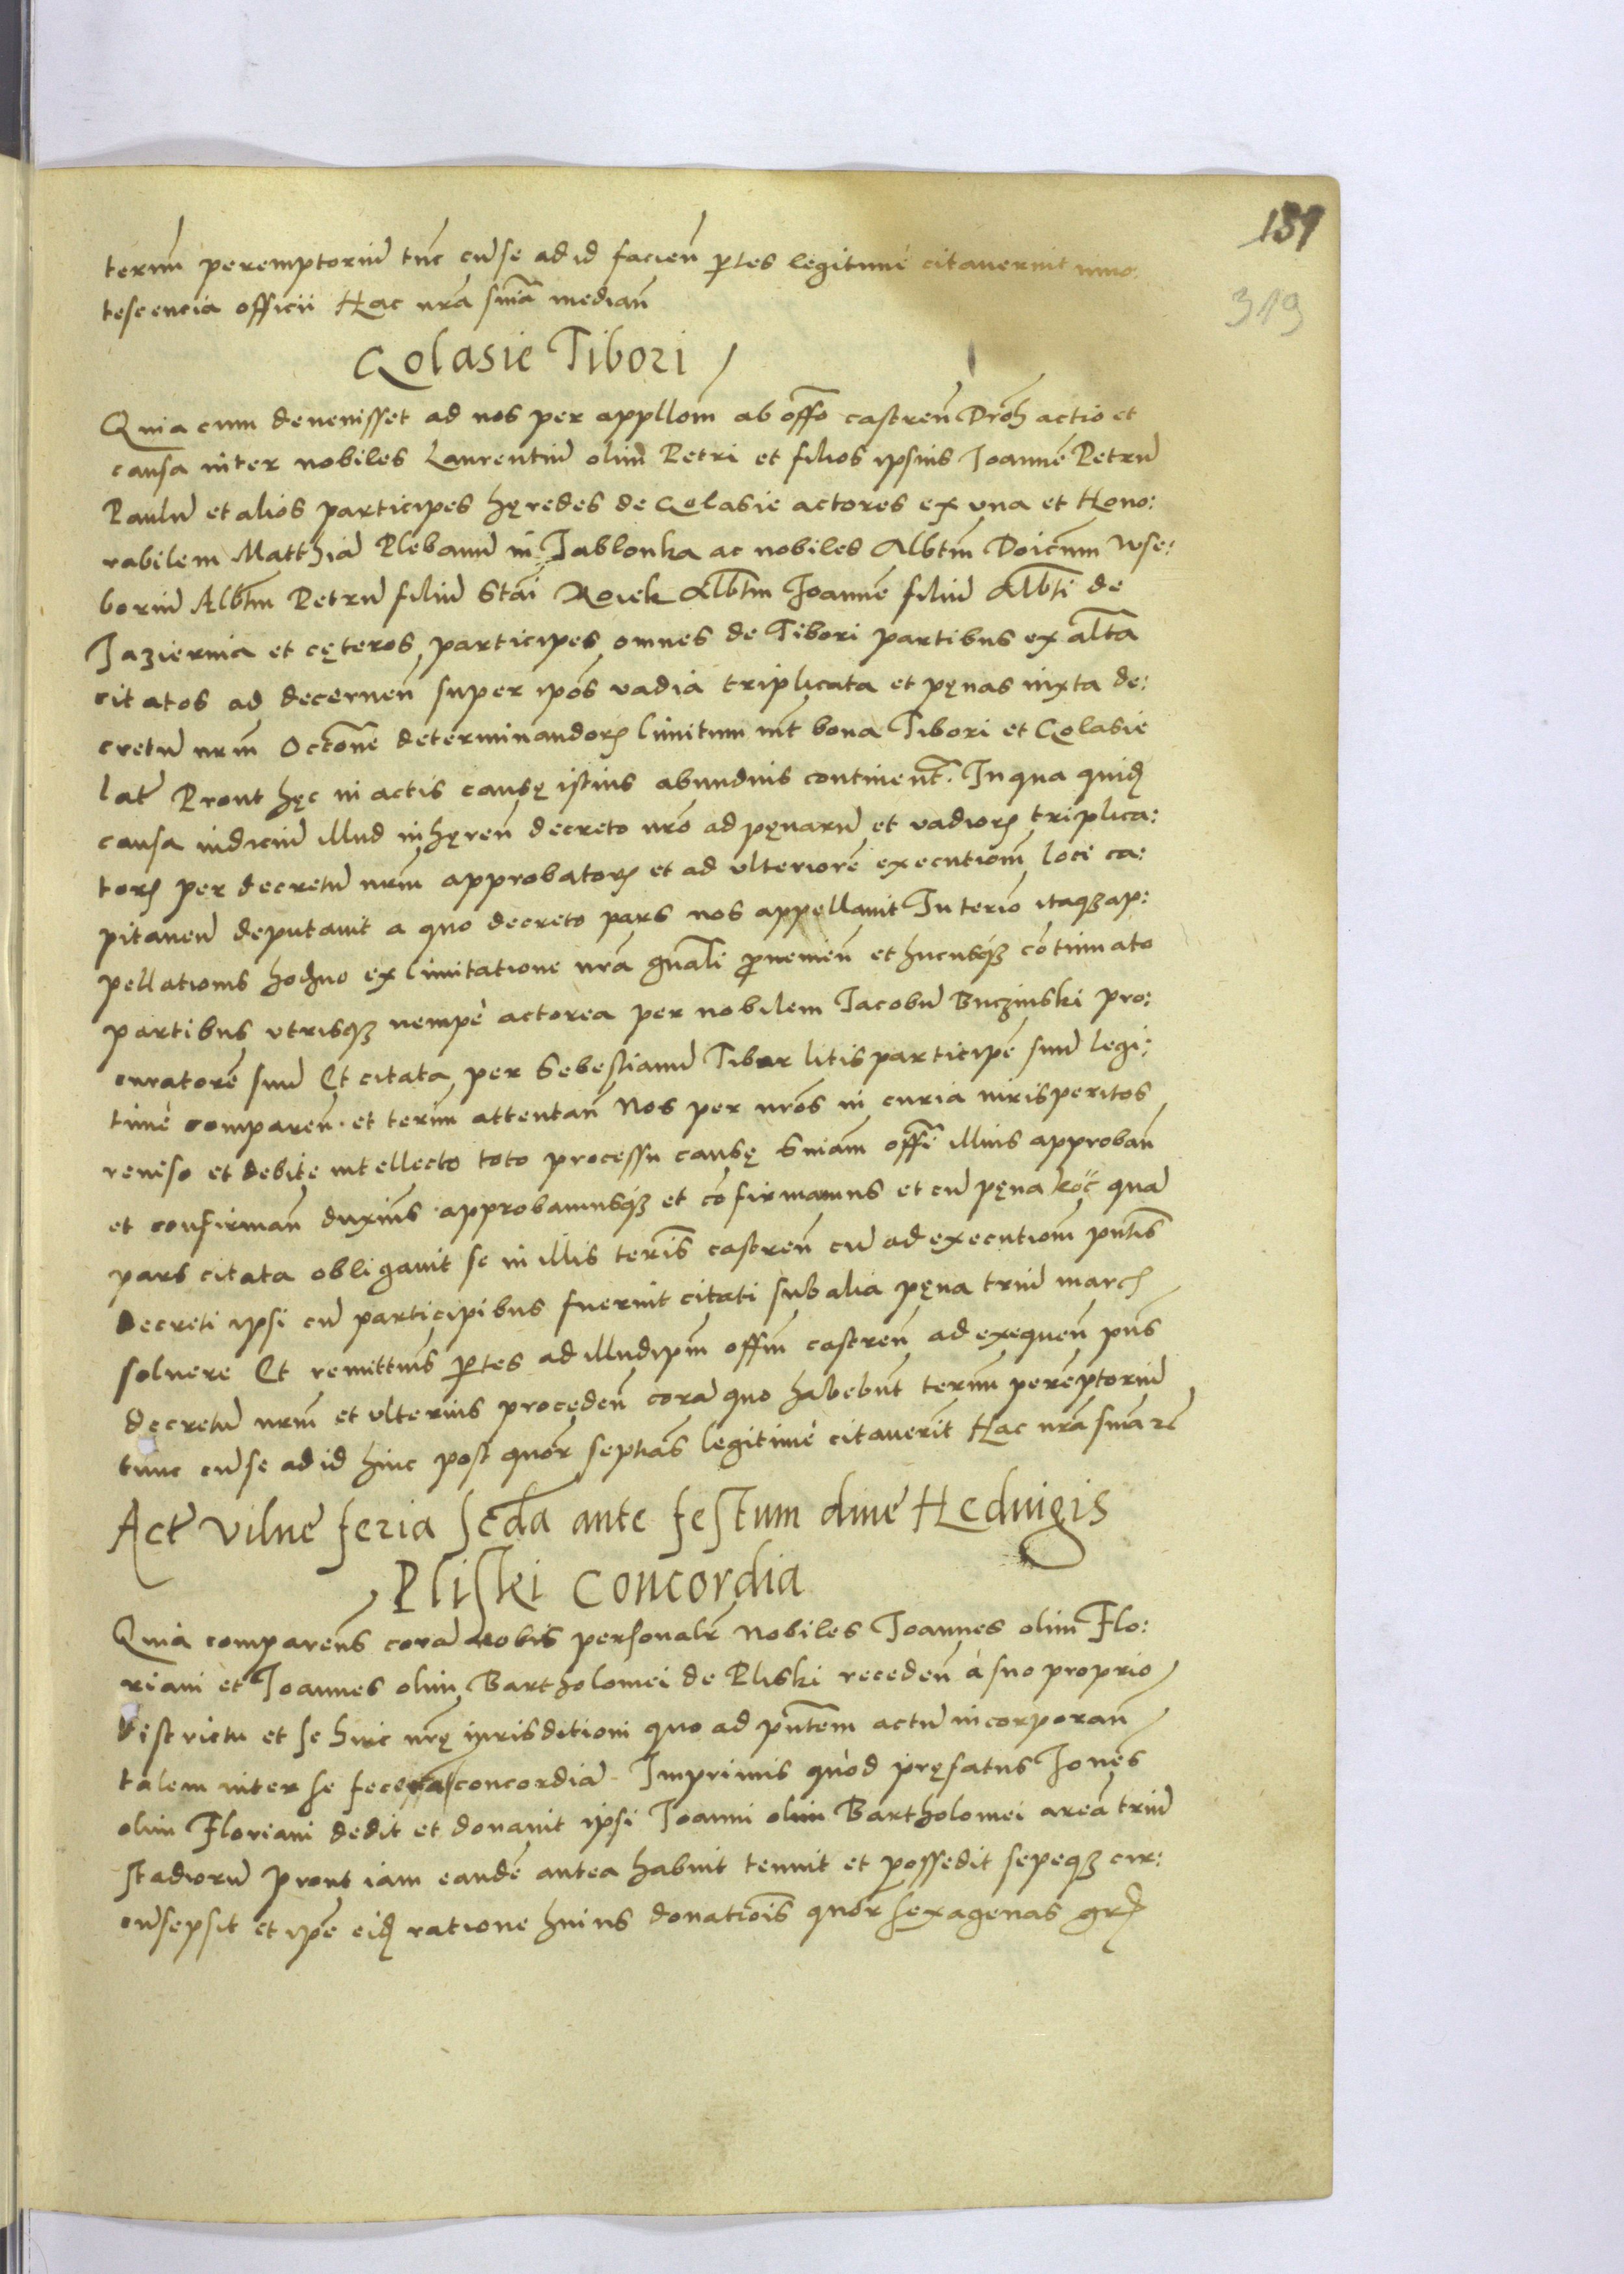 139
319
termũ peremptoriũ tũc cũ se ad id facieñ ptes legitime citaverint inno:
tescencia officii Hac nrã sniã medianñ
Qolasie Tibori
Quia cum devenisset ad nos per appllom̃ ab offo castreñ Droh actio et
causa inter nobiles Laurentiũ olim Petri et filios ipsius Joannẽ Petrũ
Paulũ et alios participes hęredes de Qolasie actores ex una et Hono:
rabilem Matthiã Plebanũ in Jablonka ac nobiles Albtm̃ Doicum Wse:
boriũ Albtm̃ Petrũ filiũ Stãi Roiek Albtm̃ Joannẽ filiũ Albti de
Jaziernia et cęteros participes omnes de Tibori partibus ex altã
citatos ad decerneñ super ipõs vadia triplicata et pęnas iuxta de:
cretũ nrm̃ Occõne determinandorz limitum int̃ bona Tibori et Qolasie
lat̃ Prout hęc in actis causę istius abundius continent̃. In qua quid
causa iudiciũ illud inhęreñ decreto nrõ ad pęnarũ et vadiorz triplica:
torz per decretũ nrm̃ approbatorz et ad ulteriorẽ executiom̃ loci ca:
pitaneũ deputavit a quo decreto pars nos appellavit In terio itaqz ap:
pellationis hodiuo ex limitatione nrã gnãli pveneñ et hucusqz cõtinuato
partibus utrisqz nempè actorea per nobilem Jacobũ Buczinski pro:
curatorẽ suũ Et citata per Sebestianũ Tibor litis participẽ suũ legi:
timè compareñ et terim̃ attentañ Nos per nrõs in curia iurisperitos
reviso et debite intellecto toto processu causę Sniãm offi illius approbañ
et confirmañ duxim̃s approbamusqz et cõfirmamus et cũ pęna koc quã
pars citata obligavit se in illis teris castreñ cũ ad executiom̃ pñtis
Decreti ipsi cũ participibus fuerint citati sub alia pęna triũ marcz
solvere Et remittim̃s ptes ad illud ipm̃ offm̃ castreñ ad exequeñ pñs
decretũ nrm̃ et ulterius procędeñ corã quo habebũt termũ perẽptoriũ
tunc cũ se ad id hinc post quor septias legitimè citaverit Hac nrã sniã rc
Act̃ Vilnẽ feria scdã ante festum dive Heduigis
Pliski Concordia
Quia comparens corã nobis personalr̃ Nobiles Joannes olim Flo:
riani et Joannes olim Bartholomei de Pliski recedeñ à suo proprio
Districtu et se huic nrę iurisditioni quo ad pñtem actũ incorporañ
talem inter se fecerũt concordiã. Imprimis quòd pręfatus Joñes
olim Floriani dedit et donavit ipsi Joanni olim Bartholomei areã triũ
stadiorũ Prout iam eandẽ antea habuit tenuit et possedit sepeqz cir:
cũsepsit et ipẽ eid ratione huius donatiois quor sexagenas grz